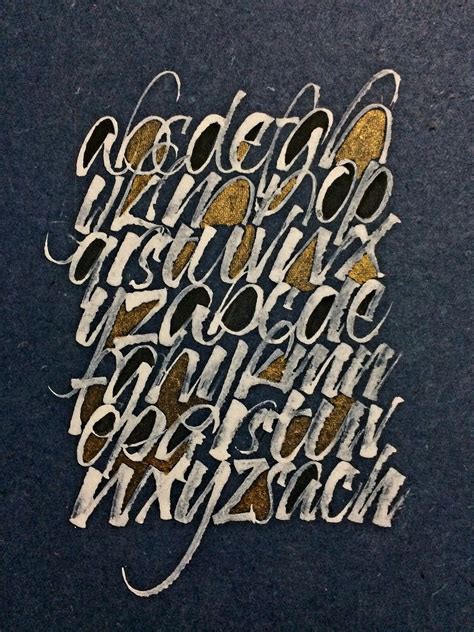 abcdefgh
ijklmnop
qrstuvwx
yzabcde
fghijklmn
opqrstuv
wxyzsach